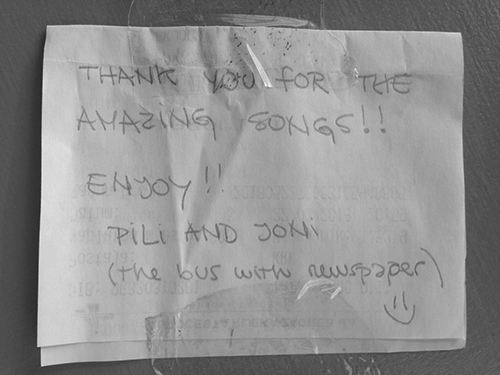 THANK YOU FOR THE
AMAZING SONGS!!
ENJOY!!
PILI AND JONI
(the bus with newspaper)